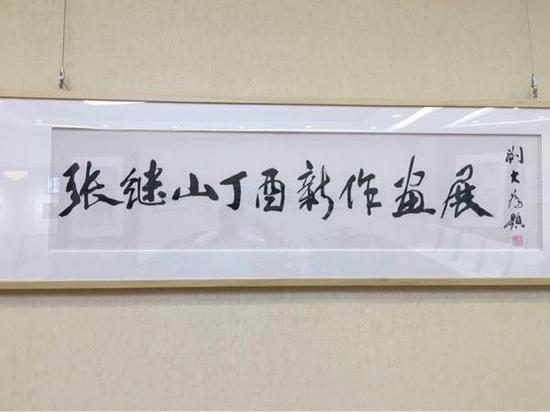 张继山丁酉新作画展
刘大为题